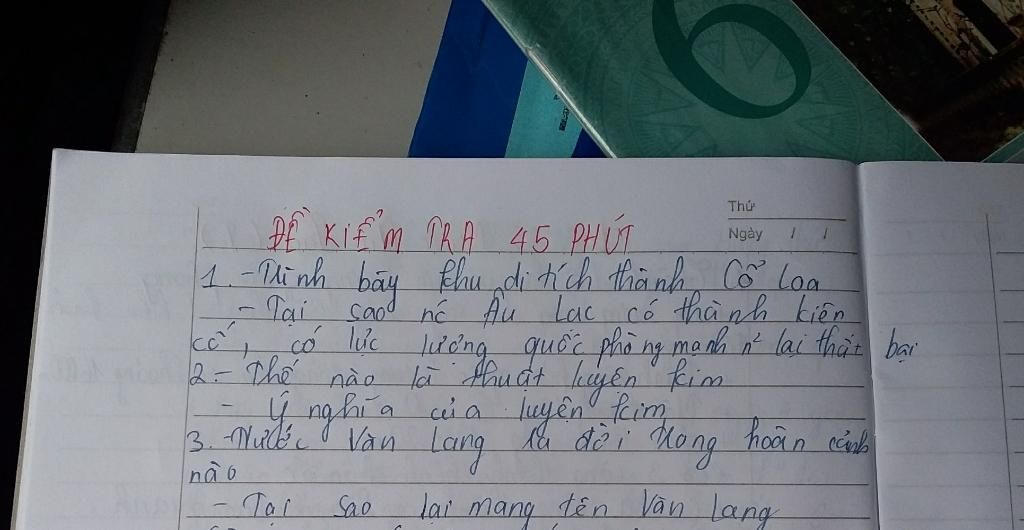 6
Thứ
Ngày / /
ĐỀ KIỂM TRA 45 PHÚT
1. - Trình bày khu di tích thành Cổ Loa
- Tại sao nc Âu Lạc có thành kiên
cố, có lực lượng quốc phòng mạnh n² lại thất bại
2. - Thế nào là thuật luyện kim
- Ý nghĩa của luyện kim
3. - Nước Văn Lang ra đời trong hoàn cảnh
nào
- Tại sao lại mang tên Văn Lang